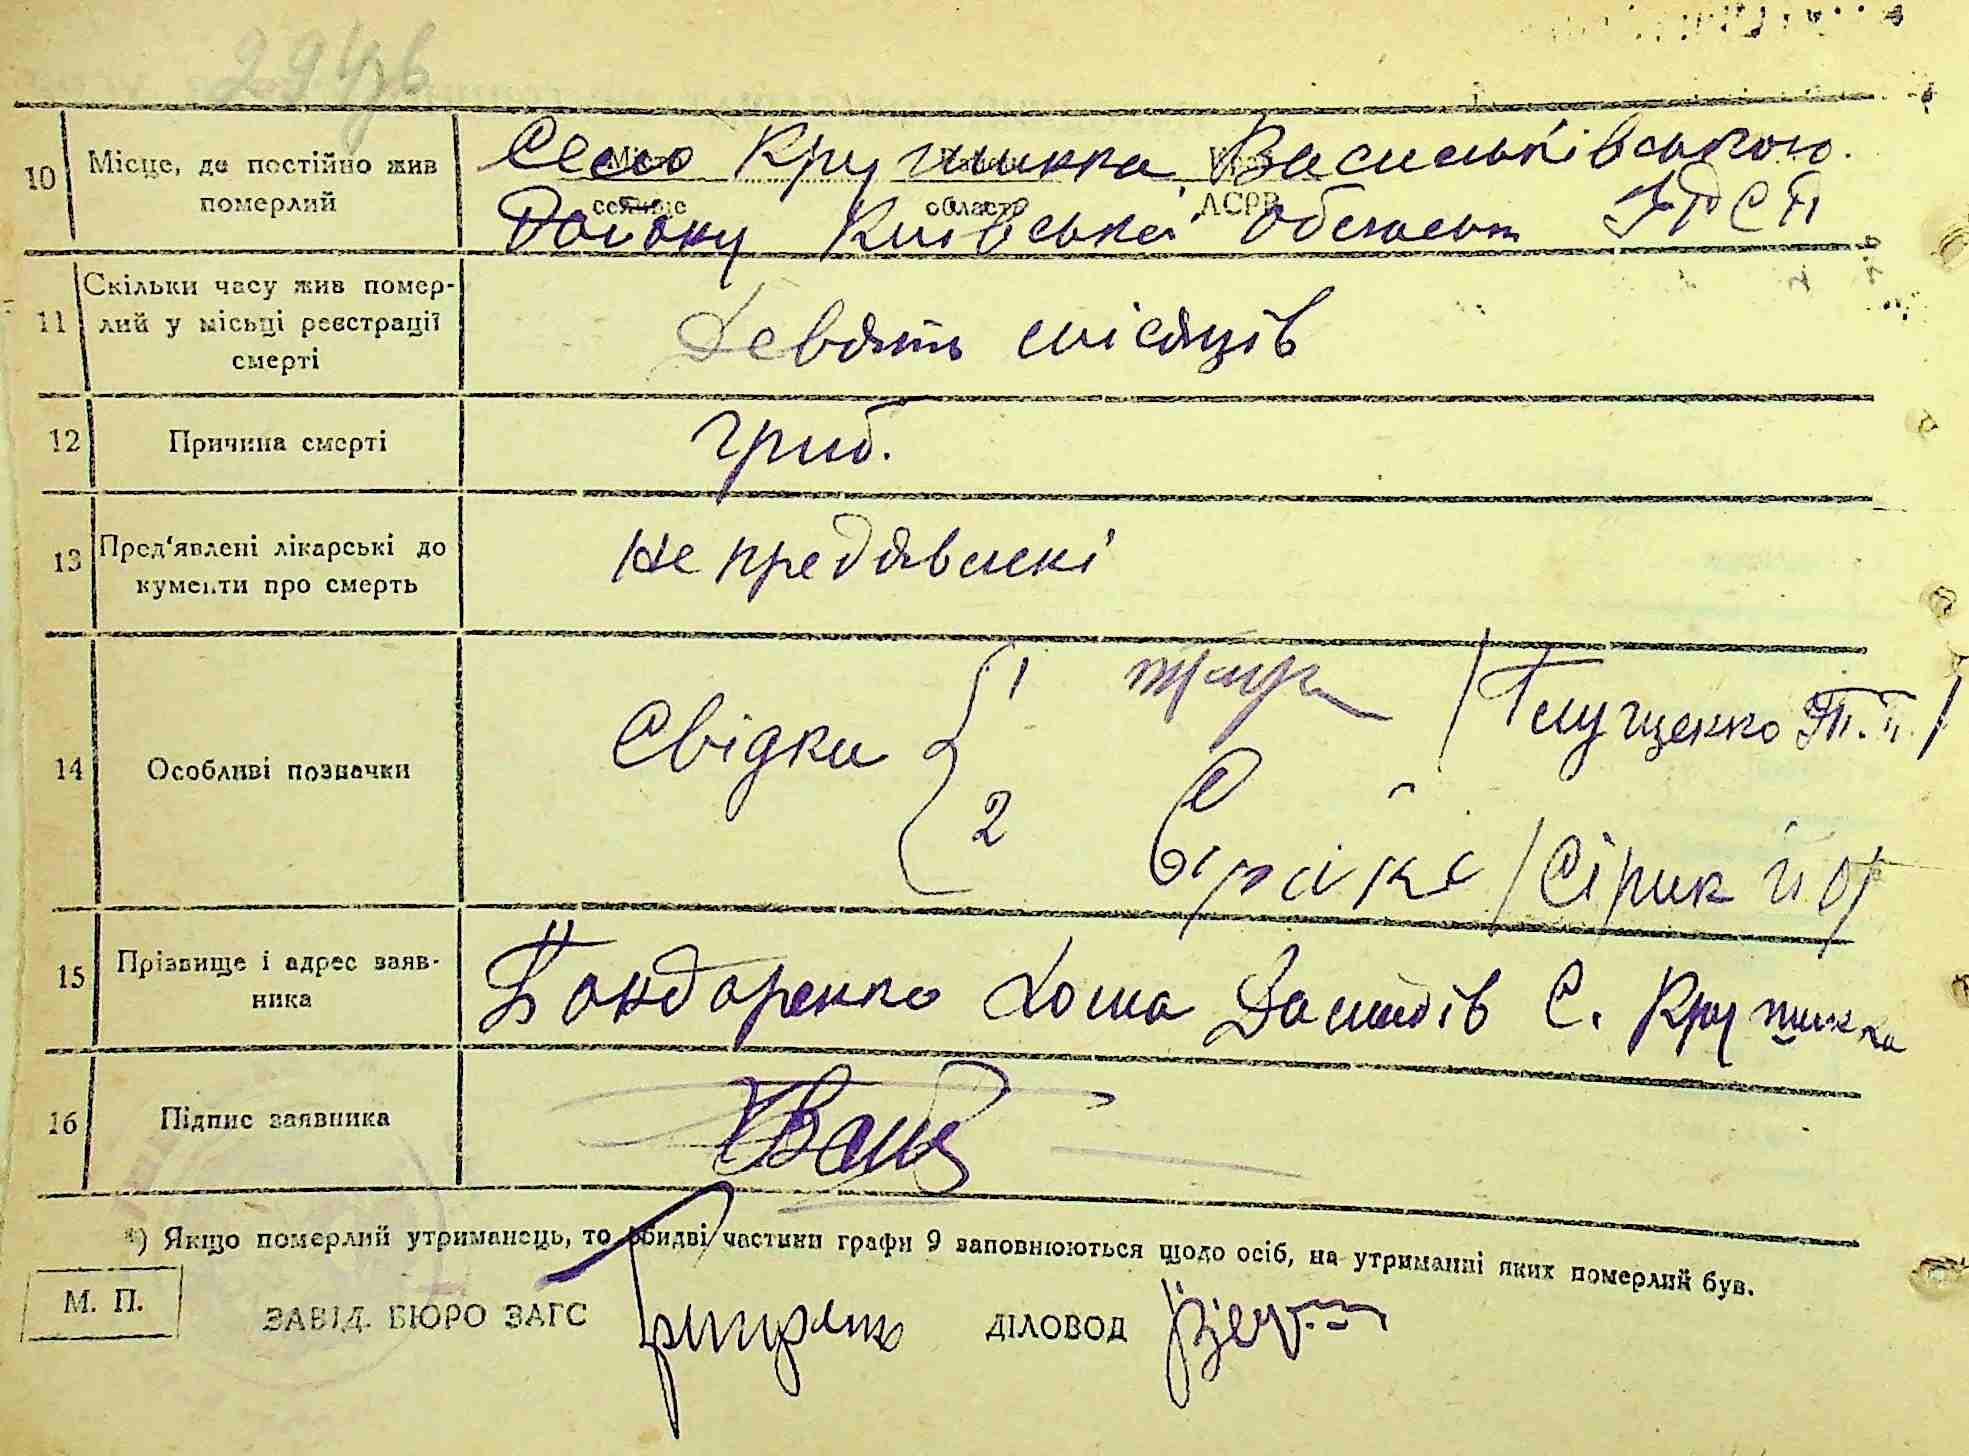 10 Місце, де постійно жив померлий
Село Крушинка Васильківського
Місто Район Край
селище область АСРР
Району Київської області УРСР
11 Скільки часу жив помер-
лий у місьці реєстрації
смерті
Девять місяців
12 Причина смерті
гриб.
13 Пред'явлені лікарські до
кументи про смерть
не предявлені
14 Особливі позначки
Свідки 1 /Глущенко Т.П./
2 /Сірик Й О/
15 Прізвище і адрес заяв-
ника
Бондаренко Дома Давидів С. Крушинка
16 Підпис заявника
*) Якщо померлий утриманець, то обидві частини графи 9 заповнюються щодо осіб, на утриманні яких померлий був.
М. П.
ЗАВІД. БЮРО ЗАГС ДІЛОВОД